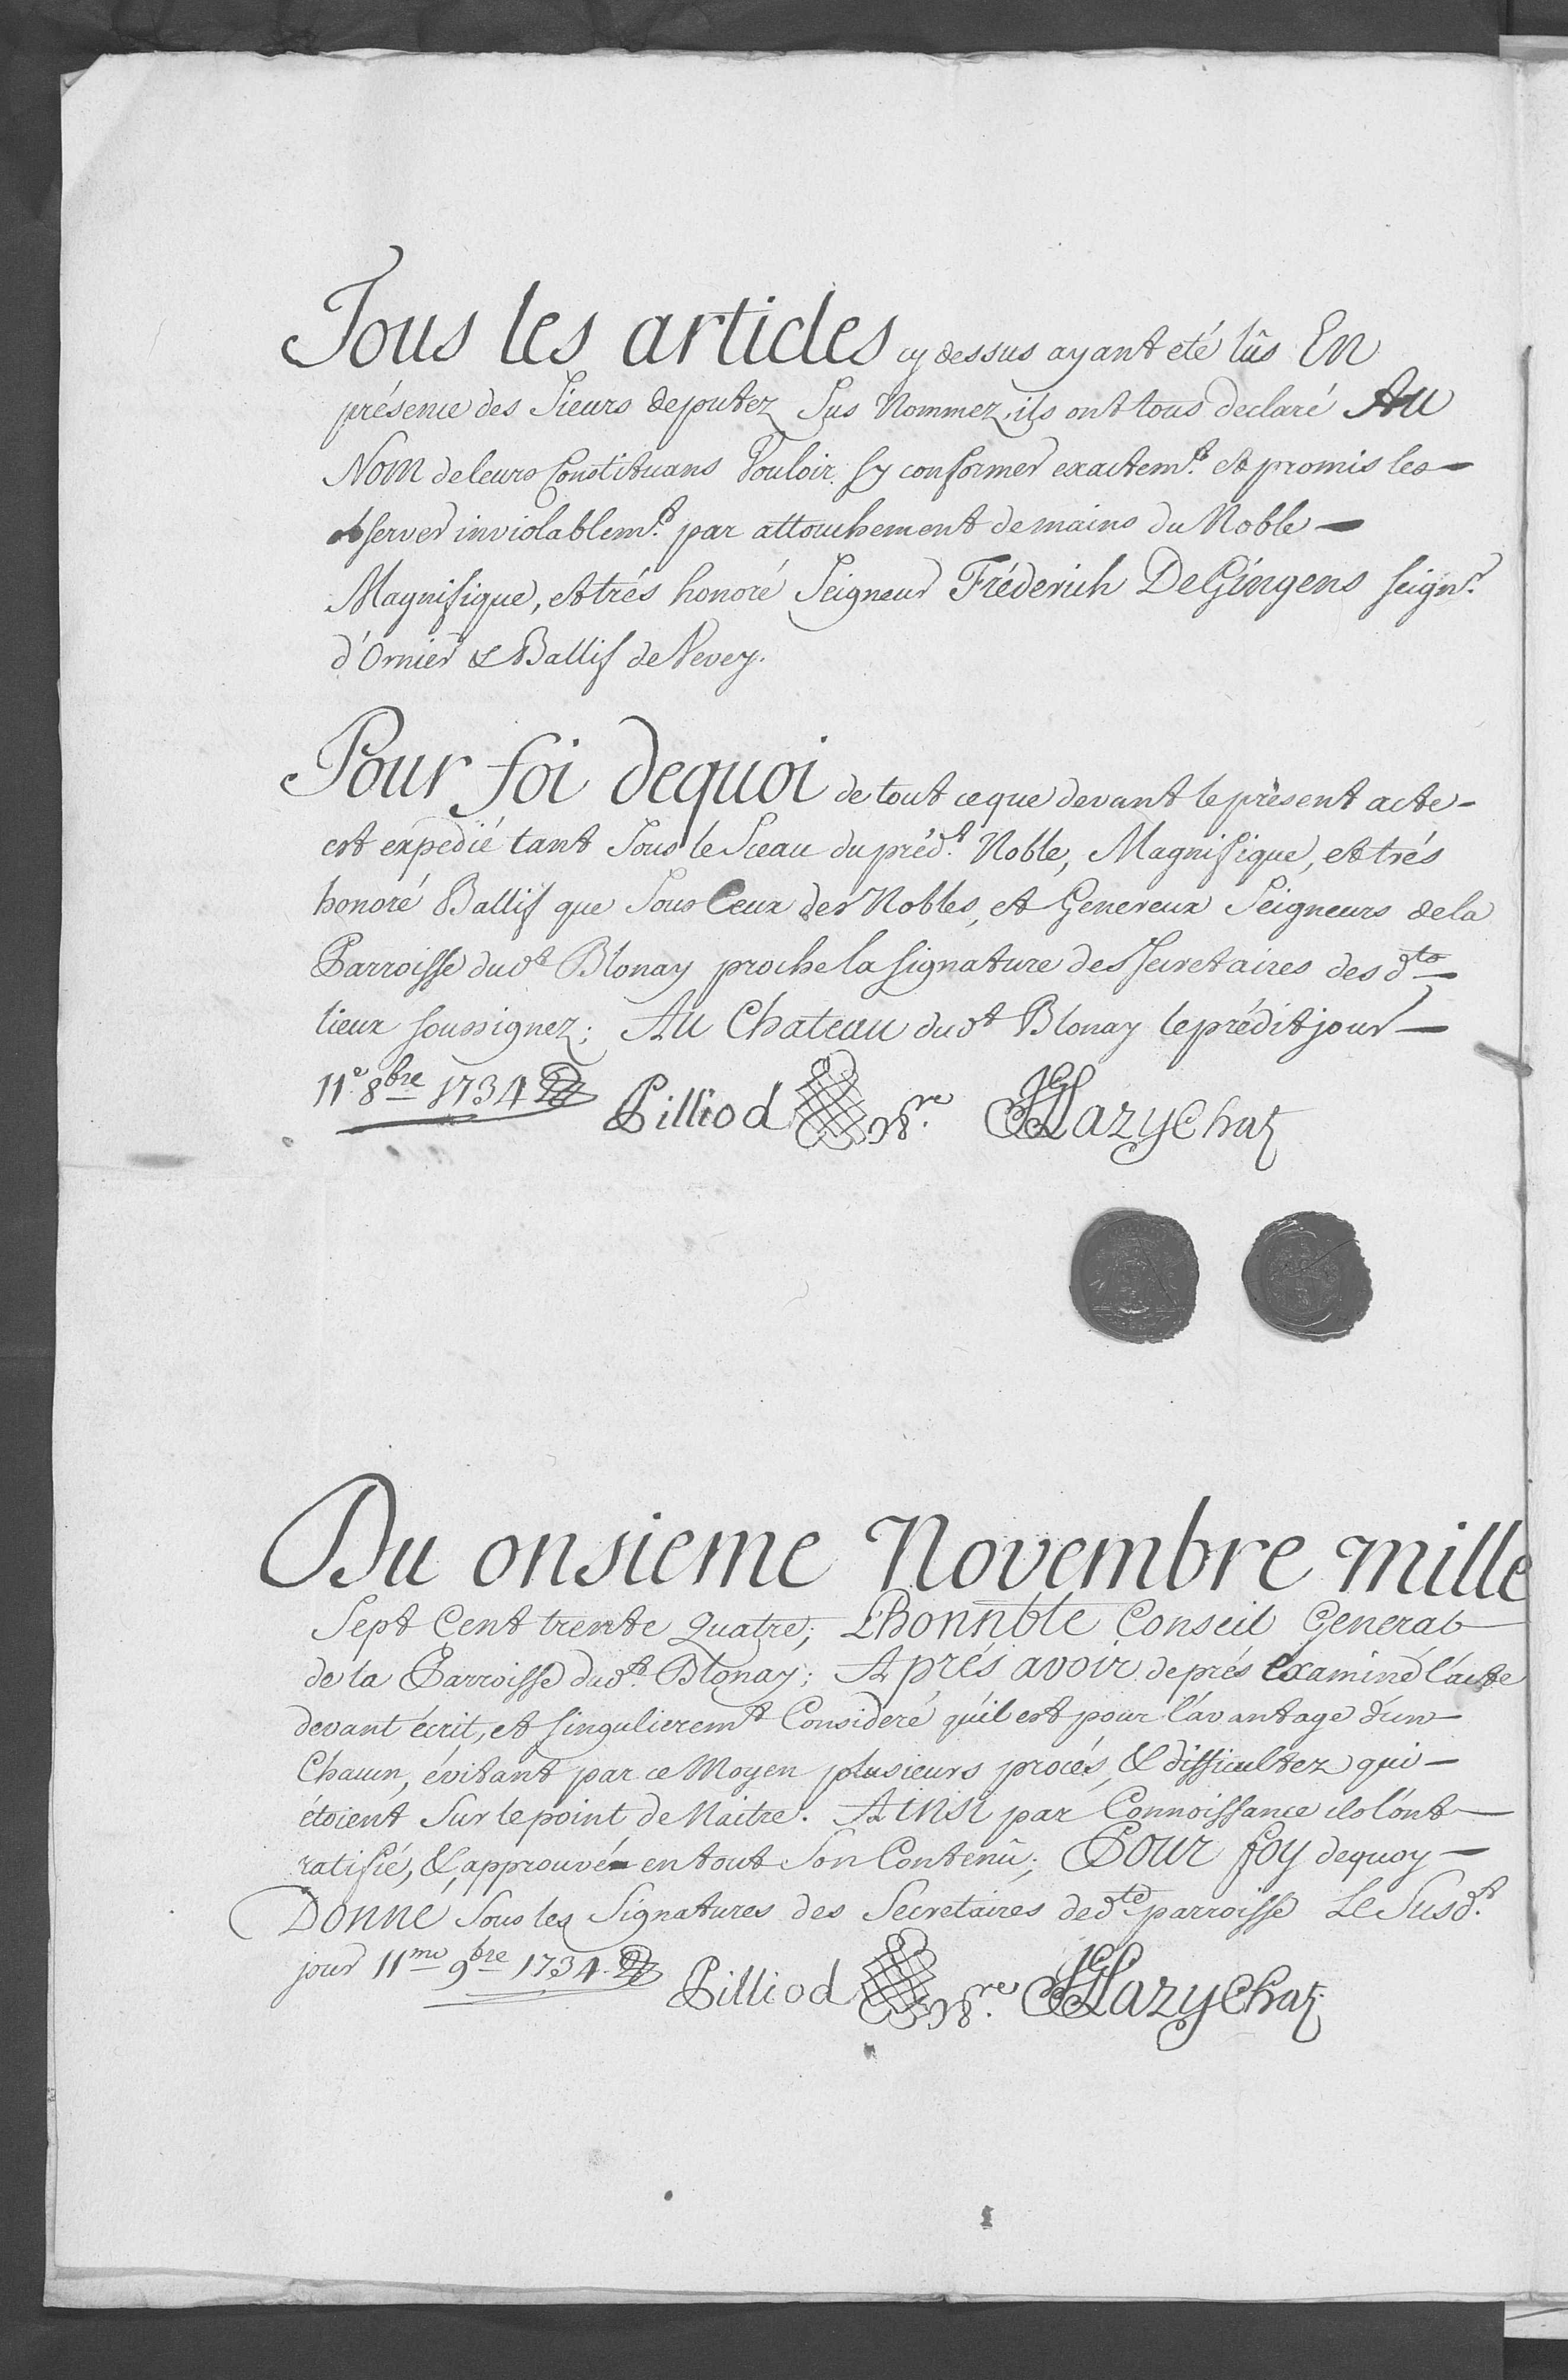 Tous les articles cy dessus ayant eté lûs En
présence des Sieurs deputez Sus Nommez, ils ont tous declaré Au
Nom de leurs Constituans Vouloir sy conformer exactemt. et promis les
observer inviolablemt. par attouchement de mains du Noble
Magnifique, et trés honoré Seigneur Fréderich De Gingens seignr.
d'Ornier & Ballif de Vevey.
Pour foi dequoi de tout ce que devant le present acte
est expedié tant Sous le Sceau du prédt. Noble, Magnifique, et trés
honoré Ballif que Sous Ceux des Nobles, et Genereux Seigneurs de la
Parroisse dudt Blonay proche la signature des secretaires des dts
lieux soussignez; Au Chateau dudt Blonay le prédit jour
11e. 8bre 1734
Pilliod
Chat
Du onsieme Novembre mille
Sept Cent trente Quatre; L'honnble Conseil General
de la Parroisse dudt. Blonay; Aprés avoir deprés examiné l'acte
devant écrit, et singulieremt Consideré qu'il est pour l'avantage d'un
Chacun, évitant par ce Moyen plusieurs procés, & difficultez qui
étoient Sur le point de Naitre. Ainsi par Connoissance ils l'ont
ratifié, & approuvé en tout Son Contenû; Pour foy dequoy
Donné Sous les Signatures des Secretaires de dte parroisse Le Susdt.
jour 11me 9bre 1734.
Pilliod
Chat